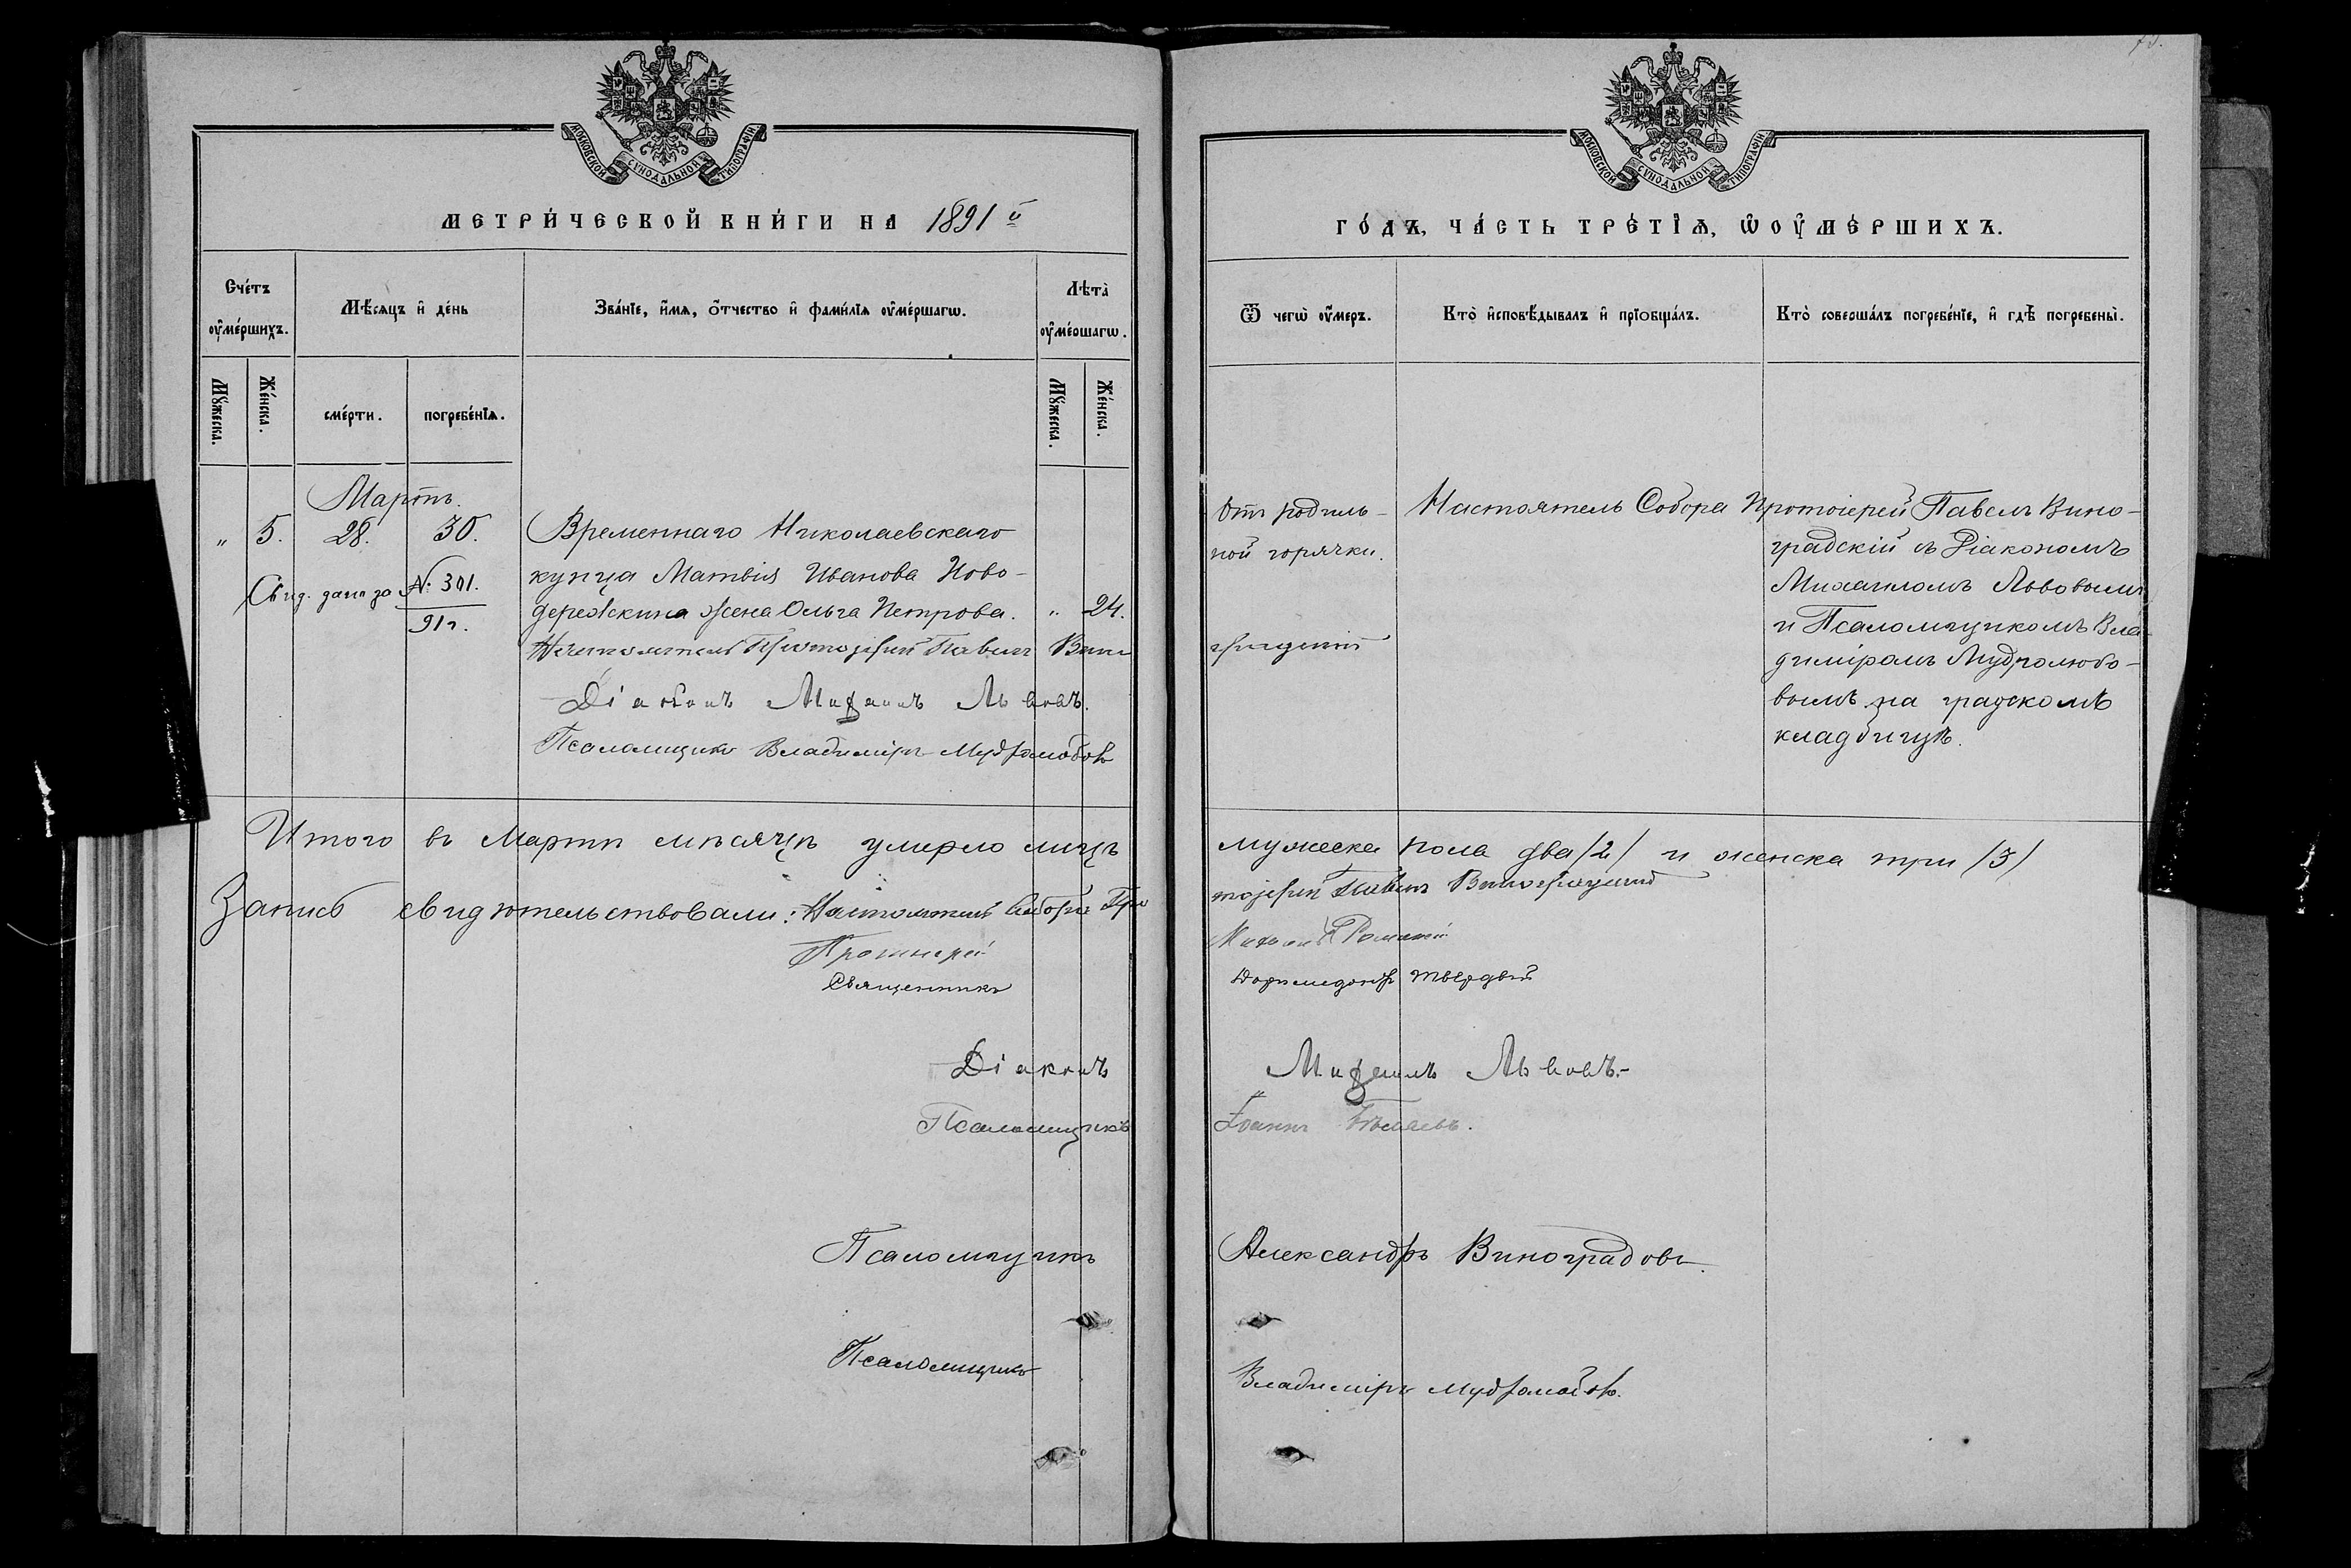 МОСКОВСКОЙ СѴНОДАЛЬНОЙ ТИПОГРАФІИ
МЕТРИ́ЧЕСКОЙ КНИ́ГИ НА 1891 й
Сче́тъ оу҆ме́ршихъ.
Мѣ́сяцъ и҆ де́нь
Зва́нїе, и҆́мѧ, ѻ҆́тчество и҆ фами́лїѧ оу҆ме́ршагѡ.
Лѣта̀ оу҆ме́ршагѡ.
Мꙋ́жеска.
Же́нска.
сме́рти.
погребе́нїѧ.
Мꙋ́жеска.
Же́нска.
Мартъ.
" 5. 28. 30. Временнаго Николаевскаго
купца Матвія Иванова Ново-
Свид. дано за № 301.
91 г.
дережкина жена Ольга Петрова. " 24.
Настоятель Протоіерей Павелъ Вино
Діаконъ Михаилъ Львовъ.
Псаломщикъ Владиміръ Мудролюбовъ
Итого въ Мартѣ мѣсяцѣ умерло лицъ
Запись свидѣтельствовали: Настоятель Собора Про
Протоіерей
Священникъ
Діаконъ
Псаломщикъ
Псаломщикъ
Псаломщикъ
МОСКОВСКОЙ СѴНОДАЛЬНОЙ ТИПОГРАФІИ
ГО́ДЪ, ЧА́СТЬ ТРЕ́ТЇѦ, Ѡ ОУ҆МЕ́РШИХЪ.
Ѿ чегѡ̀ оу҆́меръ.
Кто̀ и҆сповѣ́дывалъ и҆ прїобща́лъ.
Кто̀ соверша́лъ погребе́нїе, и҆ гдѣ̀ погребены̀.
Отъ родиль-
ной горячки.
Настоятель Собора Протоіерей Павелъ Вино-
градскій съ Діакономъ
Михаиломъ Львовымъ
и Псаломщикомъ Вла-
диміромъ Мудролюбо-
вымъ на градскомъ
кладбищѣ.
градскій
мужеска пола два /2/ и женска три /3/
тоіерей Павелъ Виноградскій
Михаилъ
Доримедонтъ Твердый
Михаилъ Львовъ.
Іоаннъ
Александръ Виноградовъ.
Владиміръ Мудролюбовъ.